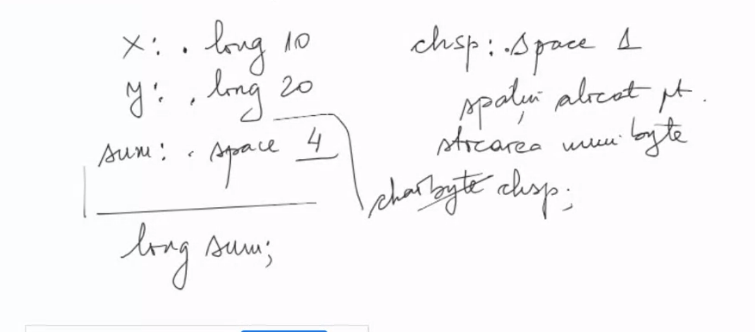 x: .long 10
y: .long 20
sum: .space 4
long sum;
chsp: .space 1
spațiu alocat pt.
stocarea unui byte
char byte chsp;